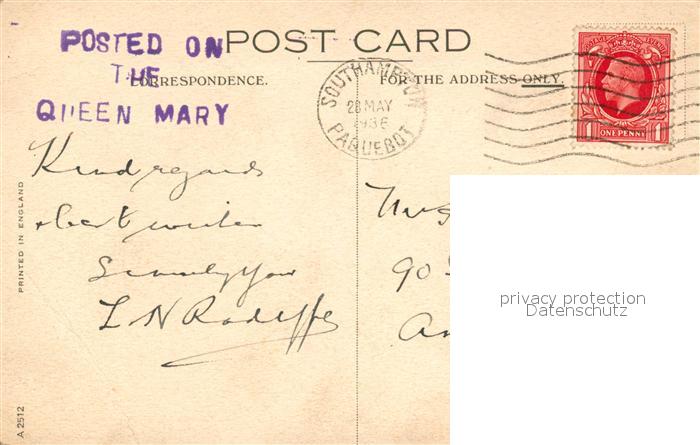 POSTED ON
THE
QUEEN MARY
POST CARD
CORRESPONDENCE.
FOR THE ADDRESS ONLY.
SOUTHAMPTON
28 MAY
1936
PAQUEBOT
POSTAGE REVENUE
1 ONE PENNY 1
Kind regards
& best wishes
Sincerely Yours
L N Radcliffe
90
PRINTED IN ENGLAND
A 2512
privacy protection
Datenschutz